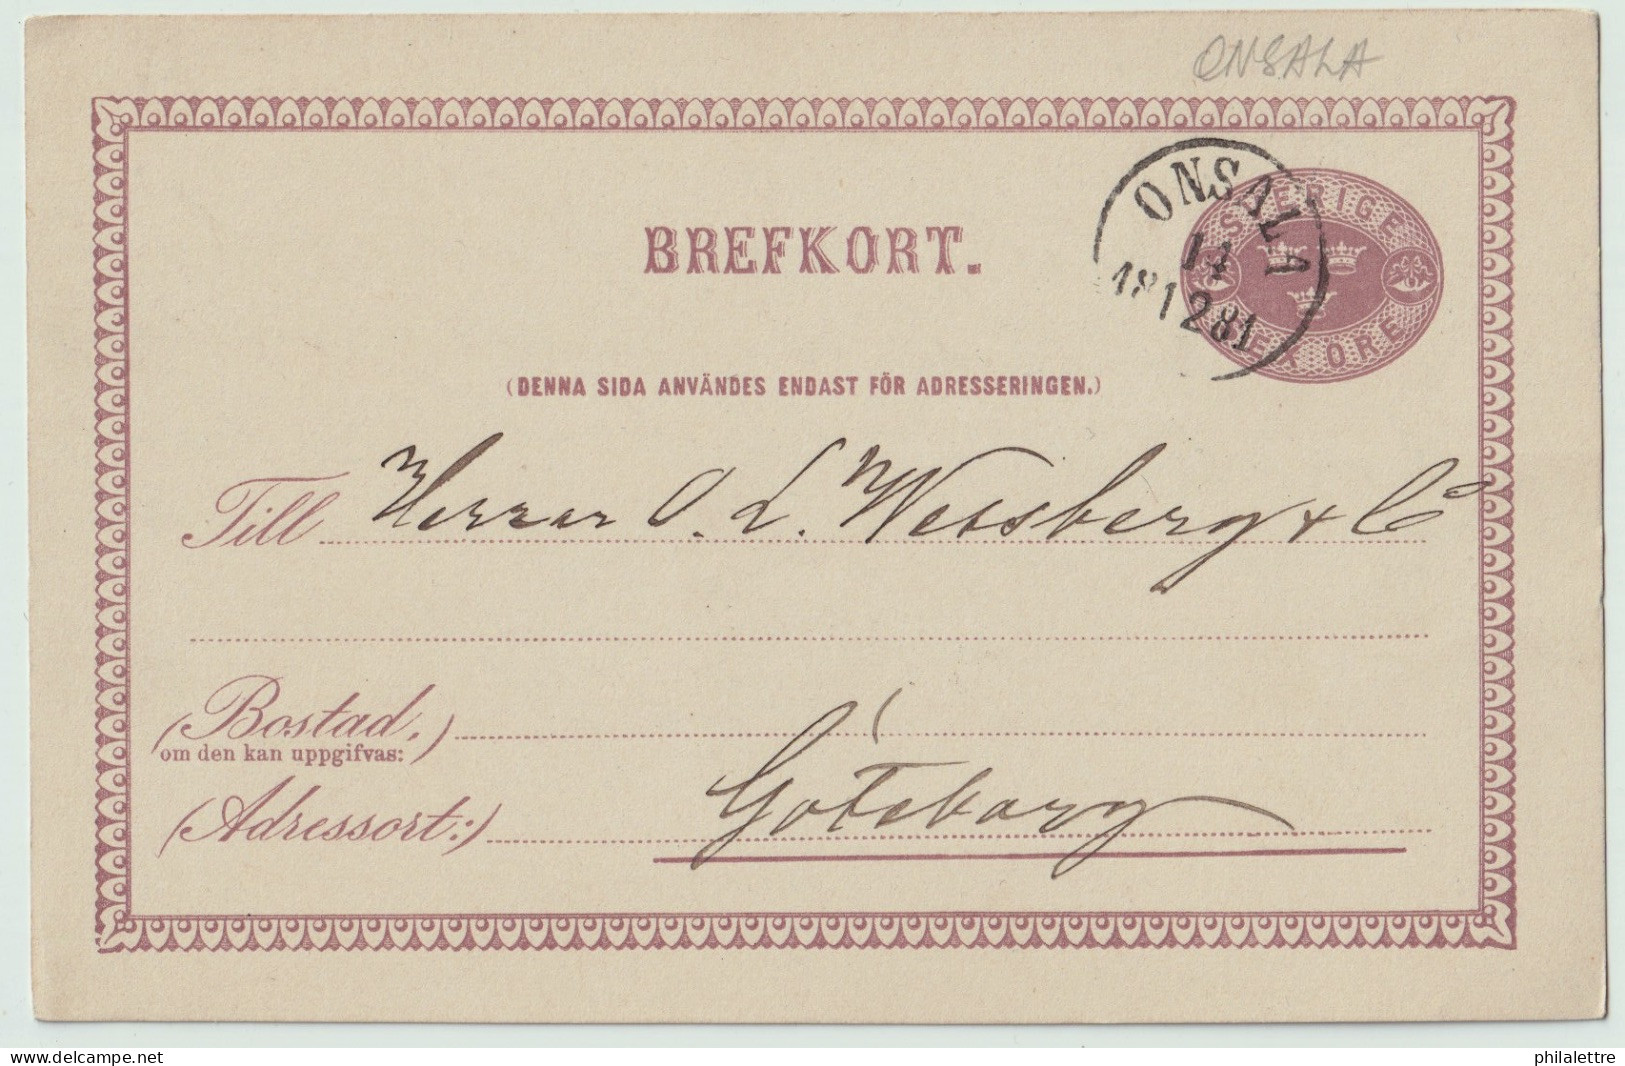 ONSALA
BREFKORT.
ONSALA
14
1812 81
SVERIGE
SEX ÖRE
(DENNA SIDA ANVÄNDES ENDAST FÖR ADRESSERINGEN.)
Till Herrar O. L. Wessberg & Co
(Bostad,)
om den kan uppgifvas:
(Adressort:) Göteborg
philalettre